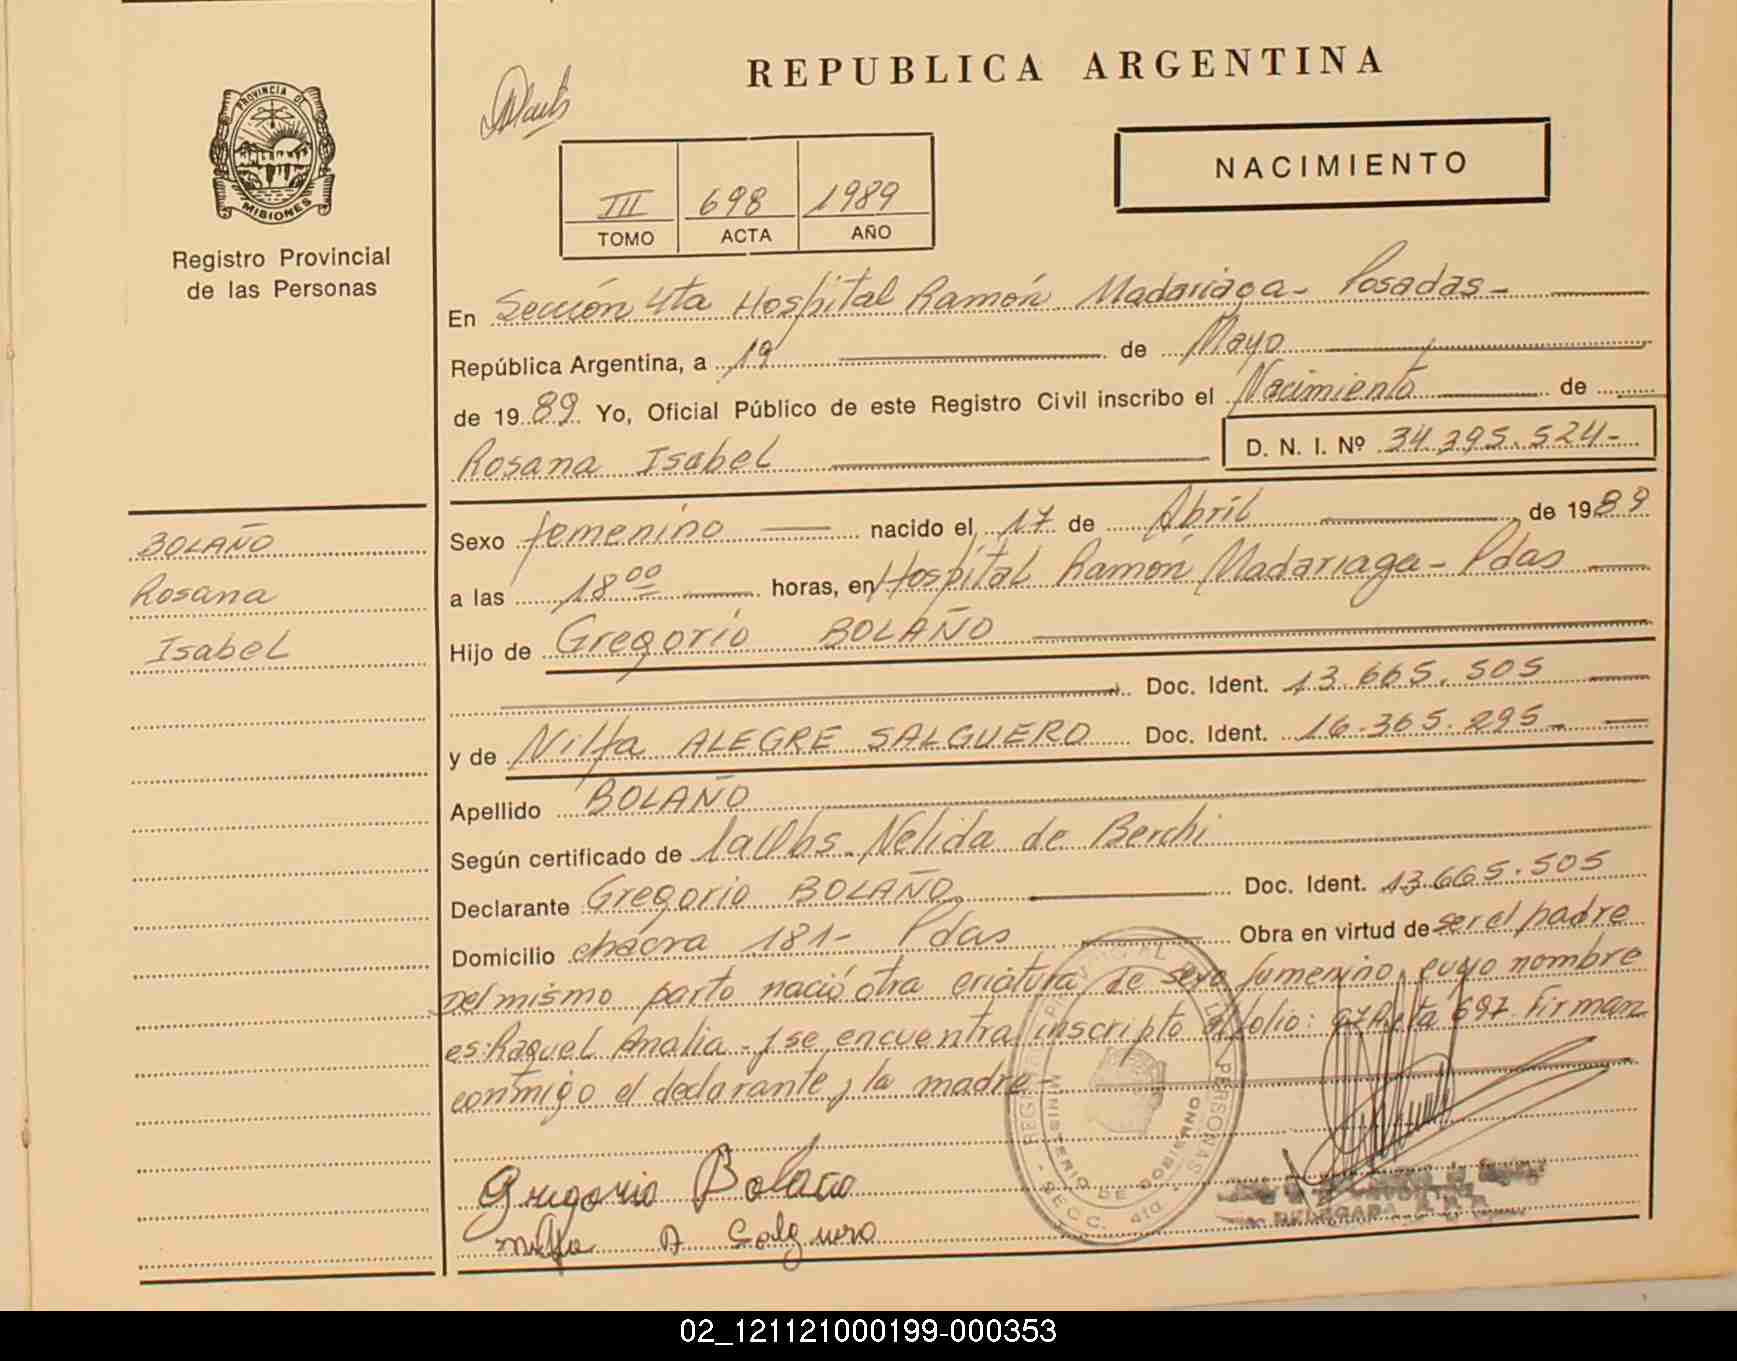 REPUBLICA ARGENTINA
NACIMIENTO
PROVINCIA DE
MISIONES
Registro Provincial
de las Personas
III 698 1989
TOMO ACTA AÑO
En Sección 4ta Hospital Ramón Madariaga - Posadas -
República Argentina, a 19 de Mayo
de 1989 Yo, Oficial Público de este Registro Civil inscribo el Nacimiento de
Rosana Isabel D. N. I. Nº 34.395.524-
BOLAÑO
Rosana
Isabel
Sexo femenino nacido el 17 de Abril de 1989
a las 18 00 horas, en Hospital Ramón Madariaga - Pdas
Hijo de Gregorio BOLAÑO
Doc. Ident. 13.665.505
y de Nilfa ALEGRE SALGUERO Doc. Ident. 16.365.295-
Apellido BOLAÑO
Según certificado de Nelida de Berchi
Declarante Gregorio BOLAÑO Doc. Ident. 13.665.505
Domicilio chacra 181- Pdas Obra en virtud de ser el padre
Del mismo parto nació otra criatura de sexo femenino, cuyo nombre
es: Raquel Analia - y se encuentra inscripto al folio: 97 Acta 697. Firman
conmigo el declarante y la madre -
Gregorio Bolaño
Nilfa A Salguero
MINISTERIO DE GOBIERNO
SECC. 4ta
02_121121000199-000353